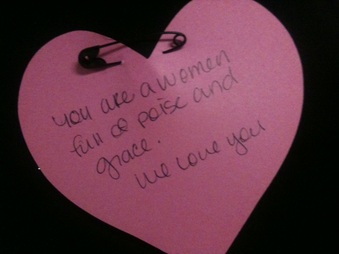 you are a women
full of poise and
grace.
We love you